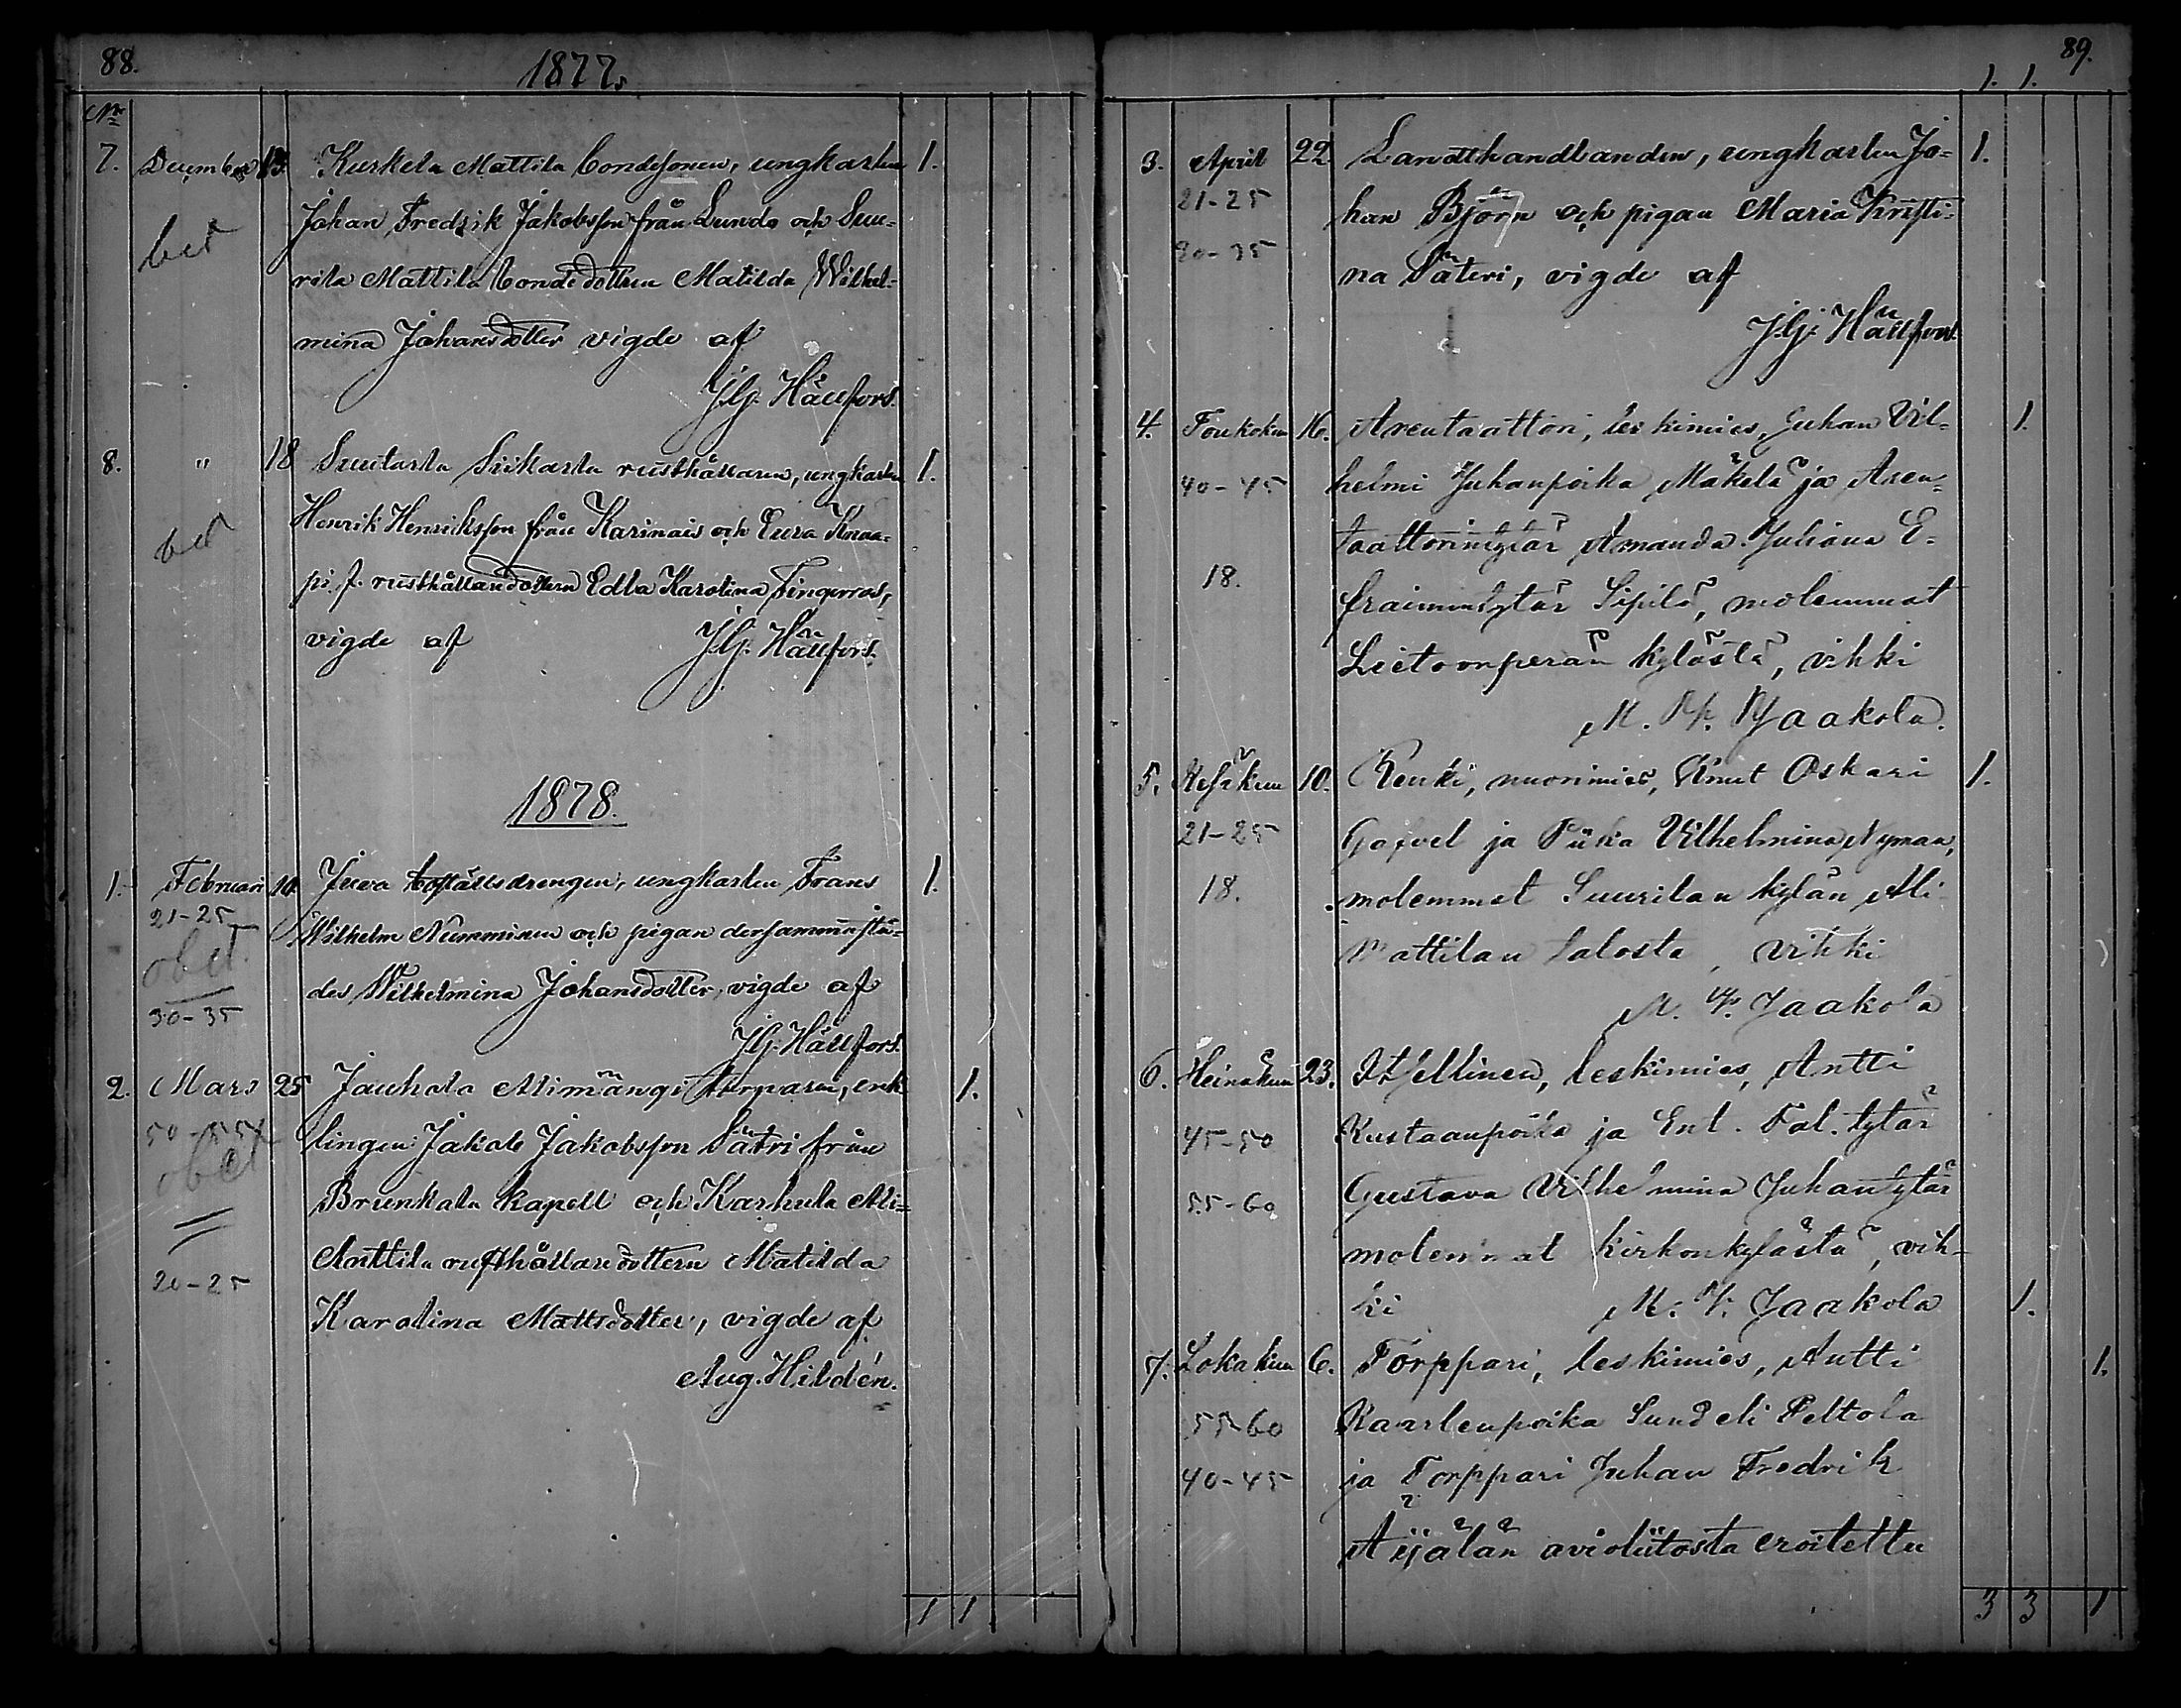 88.
1877.
No
7. December 13. Kurkela Mattila bondesonen, ungkarlen 1.
Johan Fredrik Jakobsson från Lundo och Suu-
bet
rila Mattila bondedottren Matilda Wilhel-
mina Johansdotter vigde af
J.G. Hällfors.
8. " 18 Suutarla Siikarla rusthållaren, ungkarlen 1.
bet
Henrik Henriksson från Karinais och Eura
pi f. rusthållaredottern Edla Karolina Fingerroos,
vigde af J.G. Hällfors.
1878.
1. Februari 10. Juva boställsdrengen, ungkarlen Frans 1.
21-25
Wilhelm Numminen och pigan dersammastä-
obet.
des Wilhelmina Johansdotter, vigde af
30-35
J.G. Hällfors.
2. Mars 25 Jauhola Alimängi torparen, enk 1.
50-55
lingen Jakob Jakobsson Sätri från
obet
Brunkala kapell och Karhula Ali-
Anttila rusthållaredottern Matilda
20-25
Karolina Mattsdotter, vigde af
Aug. Hildén.
1 1
89.
1. 1.
3. April 22. Landthandlanden, ungkarlen Jo- 1.
21-25
han Björn och pigan Maria Kristi-
30-35
na Säteri, vigde af
J.G. Hällfors.
4. Toukokuu 16. Arentaattori, leskimies, Juhan Vil- 1.
40-45
helmi Juhanpoika Mäkelä ja Aren-
taattorintytär Amanda Juliana E-
18.
fraimintytär Sipilä, molemmat
Lietoonperän kylästä, vihki
M. V. Jaakola.
5. Kesäkuu 10. Renki, nuorimies, Knut Oskari 1.
21-25
ja Piika Vilhelmina Nyman,
18.
molemmat Suurilan kylän Ali
Mattilan talosta, vihki
M. V. Jaakola
6. Heinäkuu 23. Itsellinen, leskimies, Antti
45-50
Kustaanpoika ja Ent. Tal. tytär
55-60
Gustava Vilhelmina Juhantytär
molemmat kirkonkylästä, vih-
ki M. V. Jaakola 1.
7. Lokakuu 6. Torppari, leskimies, Antti 1.
55-60
Kaarlenpoika Sundeli Peltola
40-45
ja Torppari Juhan Fredrik
Äijälän avioliitosta eroitettu
3 3 1